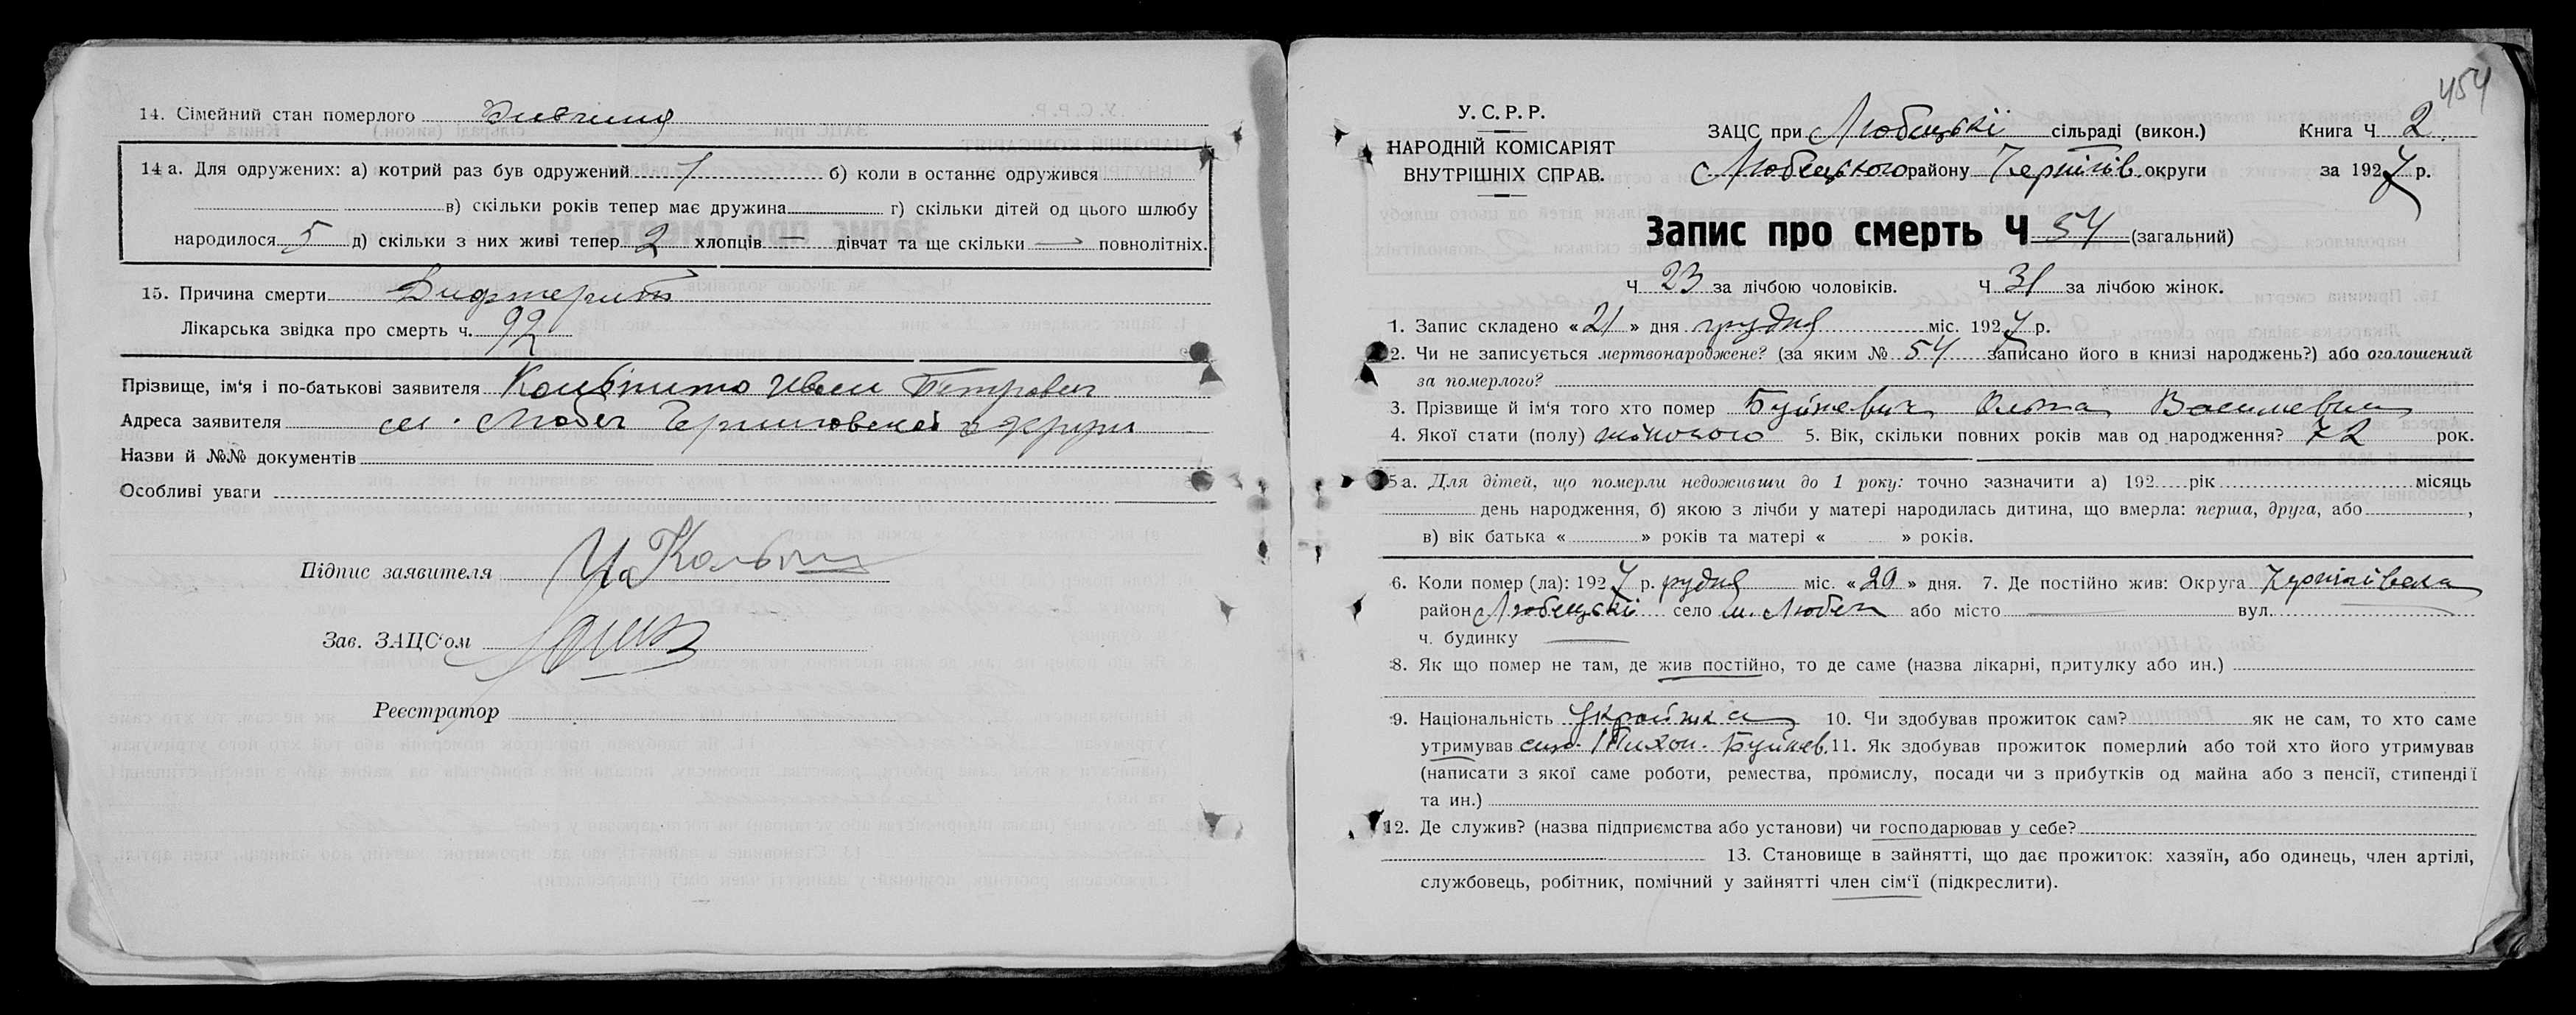 14. Сімейний стан померлого
14 а. Для одружених: а) котрий раз був одружений 1 б) коли в останнє одружився
в) скільки років тепер має дружина г) скільки дітей од цього шлюбу
народилося 5 д) скільки з них живі тепер 2 хлопців — дівчат та ще скільки — повнолітніх.
15. Причина смерти Дифтерит
Лікарська звідка про смерть ч. 92
Прізвище, ім'я і по-батькові заявителя Иван Петрович
Адреса заявителя м. Любеч Черниговской округи
Назви й №№ документів
Особливі уваги
Підпис заявителя
Зав. ЗАЦС'ом
Реєстратор
454
У. С. Р. Р.
НАРОДНІЙ КОМІСАРІЯТ
ВНУТРІШНІХ СПРАВ.
ЗАЦС при Любецькі сільраді (викон.) Книга Ч 2.
Любецького району Чернігів. округи за 1927 р.
Запис про смерть Ч 54 (загальний)
Ч 23 за лічбою чоловіків. Ч 31 за лічбою жінок.
1. Запис складено «21» дня грудня міс. 1927 р.
2. Чи не записується мертвонароджене? (за яким № 54 записано його в книзі народжень?) або оголошений
за померлого?
3. Прізвище й ім'я того хто помер Буйневич Ольга Васильевна
4. Якої стати (полу) жіночого 5. Вік, скільки повних років мав од народження? 72 рок.
5а. Для дітей, що померли недоживши до 1 року: точно зазначити а) 192 рік місяць
день народження, б) якою з лічби у матері народилась дитина, що вмерла: перша, друга, або ,
в) вік батька « » років та матері « » років.
6. Коли помер (ла): 1927 р. грудня міс. «20» дня. 7. Де постійно жив: Округа Чернігівська
район Любецькі село м. Любеч або місто — вул.
ч. будинку —
8. Як що помер не там, де жив постійно, то де саме (назва лікарні, притулку або ин.)
9. Національність Українка 10. Чи здобував прожиток сам? як не сам, то хто саме
утримував син. Тихон. Буйнев. 11. Як здобував прожиток померлий або той хто його утримував
(написати з якої саме роботи, ремества, промислу, посади чи з прибутків од майна або з пенсії, стипендії
та ин.)
12. Де служив? (назва підприємства або установи) чи господарював у себе?
13. Становище в зайнятті, що дає прожиток: хазяїн, або одинець, член артілі,
службовець, робітник, помічний у зайнятті член сім'ї (підкреслити).